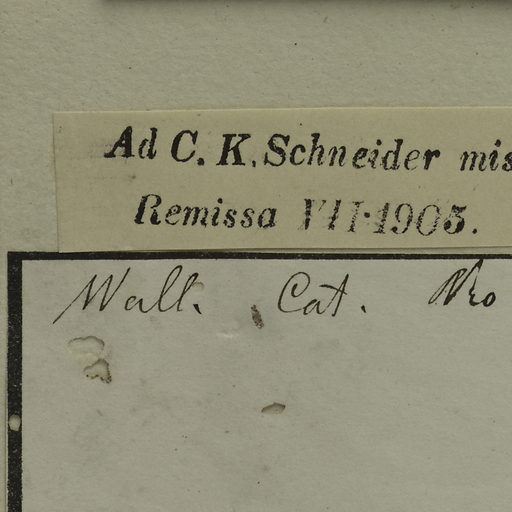 Ad C. K. Schneider mis
Remissa VII·1905.
Wall. Cat. Nro